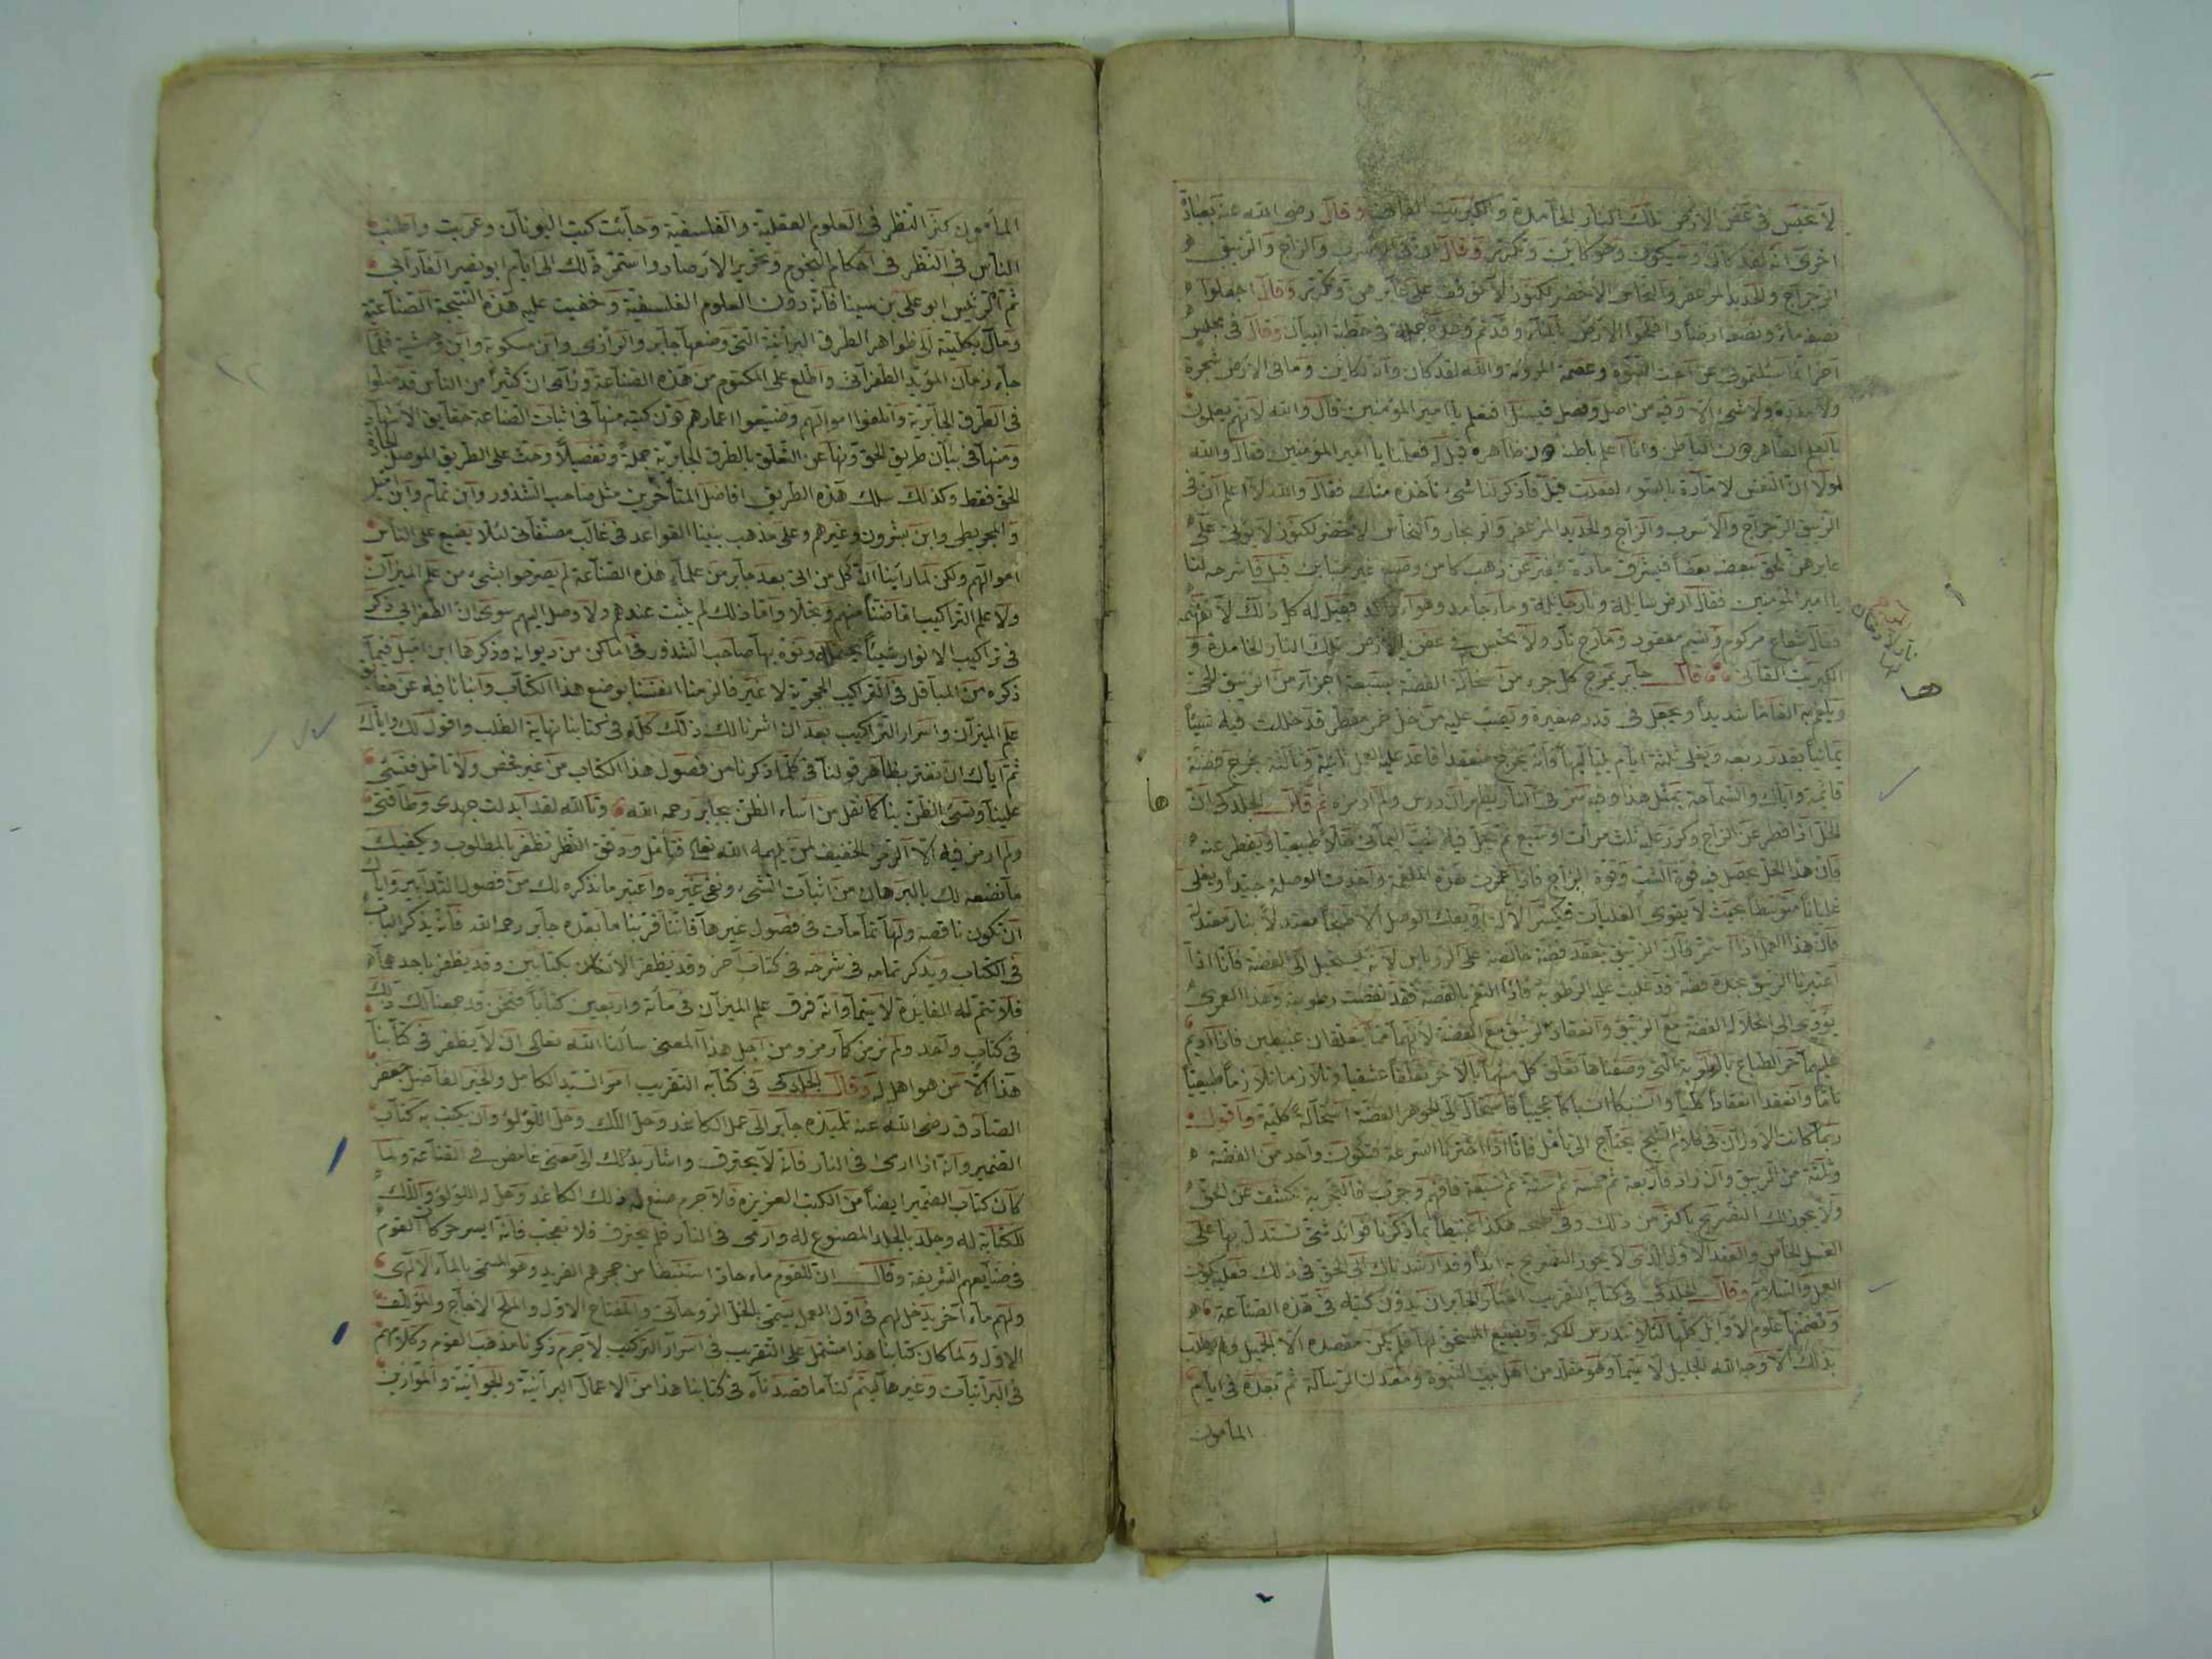 لا تحبس في عض الارض تلك النار الخامدة والكبريت القاني وقال رضي الله عنه بعبارة
اخرى انه لقد كان وسيكون وهو كاين وقال ان في الاسرب والزاج والزيبق
الرجراج والحديد المزعفر والنحاس الاخضر لكنوز لا وقال اجعلوا
نصفه ماء ونصفه ارضا وافلحوا الارض بالماء وقد تم في خطبة البيان وقال في مجلس
اخر انما سئلتموني عن اخت النبوة وعصمة المروة والله لقد كان وانه لكاين وما في الارض شجرة
ولا مدرة ولا شيء الا وفيه من اصل وفصل فيسئل افتعلم يا امير المؤمنين قال والله لانهم يعلمون
بالعلم الظاهر دون الباطن وانا اعلم باطنه دون ظاهره قيل له فعلنا يا امير المؤمنين فقال والله
لولا ان النفس لامارة بالسوء لفعلت قيل فاذكر لنا شيء ناخذه منك فقال والله لا اعلم ان في
الزيبق الرجراج والاسرب والزاج والحديد المزعفر والزنجار والنحاس الاخضر لكنوز لا يوتى على
بعضه بعضا عن ذهب كامن قيل فاشرحه لنا
يا امير المؤمنين فقال ارض سايلة ونار حايلة وماء جامد وهواء راكد فقيل له كل ذلك لا نفهمه
فقال شعاع مركوم ونسيم معقود ومارج نار ولا يحبس في عض الارض تلك النار الخامدة و
الكبريت القاني قال جابر يمزج كل جزء من سحالة الفضة بسبعة اجزاء من الزيبق الحي
ويلغم به الغاما شديدا ويجعل في قدر صغيرة ويصب عليه من خل خمر مقطر قد حللت فيه شبا
يمانيا بقدر ربعه ويغلى ثلثة ايام بلياليها فانه يخرج منعقدا فاعد عليه العمل ثانية وثالثة يخرج فضة
قائمة واياك والسماحة بمثل هذا وفيه سر ولم ارمزه ثم قال الجلدكي ان
الخل اذا قطر عن الزاج وكرر عليه ثلث مرات او سبع ثم يحل فيه الشب اليماني حلا طبيعيا ويقطر عنه
فان هذا الخل يحصل فيه قوة الشب وقوة الزاج فاذا غمرت هذه الملغمة واخذت الوصلة جيدا ويغلى
غليانا متوسطا بحيث لا يقوى الغليان
فان هذا العمل اذا استمر فان الزيبق ينعقد فضة خالصة على الروباس لانه يستحيل الى الفضة فانا اذا
اعتبرنا الزيبق نجده فضة قد غلبت عليه الرطوبة فاذا التغم بالفضة فقد نقصت رطوبته وهذا العمل
يؤدي الى انحلال الفضة مع الزيبق وانعقاد الزيبق مع الفضة لانهما
عليهما حر الطباخ بالرطوبة التي وصفناها تعلق كل منهما بالاخر تعلقا عشقيا وتلازما تلازما طبيعيا
تاما وانعقدا انعقادا كليا واشتبكا اشتباكا عجيبا فاستحال الى الجوهر الفضة استحالة كلية واقول
ربما كانت الاوزان في كلام الشيخ يحتاج الى تامل فانا اذا اخترنا السرعة فتكون واحد من الفضة
وثلثة من الزيبق وان زاد فاربعة ثم خمسة ثم ستة ثم سبعة فافهم وجرب فالتجربة تكشف عن الحق
ولا يجوز لك التصريح باكثر من ذلك بما ذكرنا فوائد شتى تستدل بها على
الغسل الخاص والعقد الاول الذي لا يجوز التصريح به ابدا وقد ارشدناك الى الحق في ذلك فعليك
العمل والسلام وقال الجلدكي في كتابه التقريب اختار الجابر ان يدون كتبه في هذه الصناعة
وتضمنها علوم الاوايل كلها لئلا تندرس الحكمة ويضيع المستحق لها فلم يكن مقصده الا الجميل ولم يطلب
بذلك الا وجه الله الجليل لا سيما وهو مقلد من اهل بيت النبوة ومعدن الرسالة ثم بعده في ايام
المامون
المامون كثر النظر في العلوم العقلية والفلسفية وجائت كتب اليونان وعربت واطنب
الناس في النظر في احكام النجوم وتحرير الارصاد واستمر ذلك الى ايام ابو نصر الفارابي
ثم الرئيس ابو علي بن سينا فانه دون العلوم الفلسفية وخفيت عليه هذه النتيجة الصناعية
ومال بكليته الى ظواهر الطرق البرانية التي وضعها جابر والرازي وابن مسكويه وابن وحشية فلما
جاء زمان المؤيد الطغرائي واطلع على المكتوم من هذه الصناعة ورآى ان كثيرا من الناس قد ضلوا
في الطرق الجابرية واتلفوا اموالهم وضيعوا اعمارهم دون كتبه منها في اثبات الصناعة حقايق الاستشهاد
ومنها في بيان طريق الحق ونها عن التعلق بالطرق الجابرية جملة وتفصيلا وحث على الطريق الموصل الى جادة
الحق فقط وكذلك سلك هذه الطريق افاضل المتأخرين مثل صاحب الشذور وابن تمام وابن اميل
والمجريطي وابن بشرون وغيرهم وعلى مذهب بنينا القواعد في غالب مصنفاتي لئلا يضيع على الناس
اموالهم ولكن لما راينا ان كل من اتى بعد جابر من علماء هذه الصناعة لم يصرحوا بشيء من علم الميزان
ولا علم التراكيب اما ضنا منهم وبخلا واما ذلك لم يثبت عندهم ولا وصل اليهم سوى ان الطغرائي ذكر
في تراكيب الانوار شيئا ونوه بها صاحب الشذور في اماكن من ديوانه وذكرها ابن اميل فيما
ذكره من المباقل في التراكيب الحجرية لا غير فالزمنا انفسنا بوضع هذا الكتاب وابنا فيه عن حقايق
علم الميزان واسرار التراكيب بعد ان اشرنا لك ذلك كله في كتابنا نهاية الطلب واقول لك واياك
ثم اياك ان تغتر بظاهر قولنا في كلما ذكرنا من فصول هذا الكتاب من غير فحص ولا تامل فتسئ
علينا وتسئ الظن بنا كما نقل من اساء الظن بجابر رحمه الله وتالله لقد ابدلت جهدي وطاقتي
ولم ارمز فيه الا الرمز الخفيف لمن يلهمه الله تعالى فتأمل ودقق النظر تظفر بالمطلوب ويكفيك
ما نضعه لك بالبرهان من اثبات الشيء ونفي غيره واعتبر ما نذكره لك من فصول التدابير واياك
ان تكون ناقصة ولها تمامات في فصول غيرها فاننا قربنا ما بعده جابر رحمه الله فانه يذكر الباب
في الكتاب ويذكر تمامه في شرحه في كتاب آخر وقد يظفر الانسان بكتابين وقد يظفر باحدهما
فلا تتم له الفايدة لا سيما وانه فرق علم الميزان في مأئة واربعين كتابا فنحن قد جمعنا لك ذلك
في كتاب واحد ولم نرمز كما رمز ومن اجل هذا المعنى سألنا الله تعالى ان لا يظفر في كتابنا
هذا الا من هو اهل له وقال الجلدكي في كتابه التقريب امر السيد الكامل والحبر الفاضل جعفر
الصادق رضي الله عنه تلميذه جابر الى عمل الكاغد وحل الطلق وحل اللؤلؤ وان يكتب به كتاب
الضمير وانه اذا ارمي في النار فانه لا يحترق واشار بذلك الى معنى غامض في الصناعة ولما
كان كتاب الضمير ايضا من الكتب العزيزة فلا جرم صنع له ذلك الكاغد وحل له اللؤلؤ والطلق
للكتابة له وجلد بالجلد المصنوع له وارمي في النار فلم يحترق فلا تعجب فانه ايسر حركات القوم
في صنايعهم الشريفة وقال ان للقوم ماء حاد استنبطا من حجرهم الفريد وهو المسمى بالماء الالهي
ولهم ماء آخر يدخل لهم في اول العمل يسمى بالخل الروحاني والمفتاح الاول والملح الاجاج والمؤلف
الاول ولما كان كتابنا هذا مشتمل على التقريب في اسرار التركيب لا جرم ذكرنا مذهب القوم وكلامهم
في البرانيات وغيرها ليتم لنا ما قصدناه في كتابنا هذا من الاعمال البرانية والجوانية والموازين